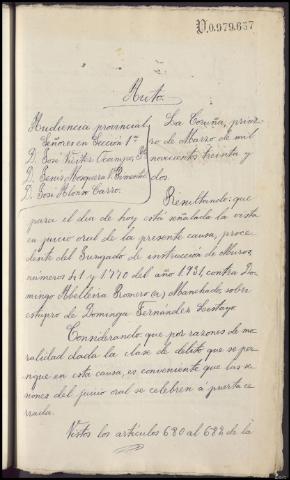 D.0.979.637
Auto.
Audiencia provincial
Señores en Sección 1ª
D. José Víctor Ocampo
D. Genis Mosquera V. Pimentel
D. José Alonso Carro.
La Coruña, prime-
ro de Marzo de mil
novecientos treinta y
dos.
Resultando: que
para el dia de hoy está señalada la vista
en juicio oral de la presente causa, proce-
dente del Juzgado de instrucción de Muros,
números 41 y 1770 del año 1931, contra Do-
mingo Abelleira Romero (a) Manchado, sobre
estupro de Dominga Fernández Lestayo
Considerando que por razones de mo-
ralidad dada la clase de delito que se per-
sigue en esta causa, es conveniente que las se-
siones del juicio oral se celebren á puerta ce-
rrada.
Vistos los artículos 680 al 682 de la